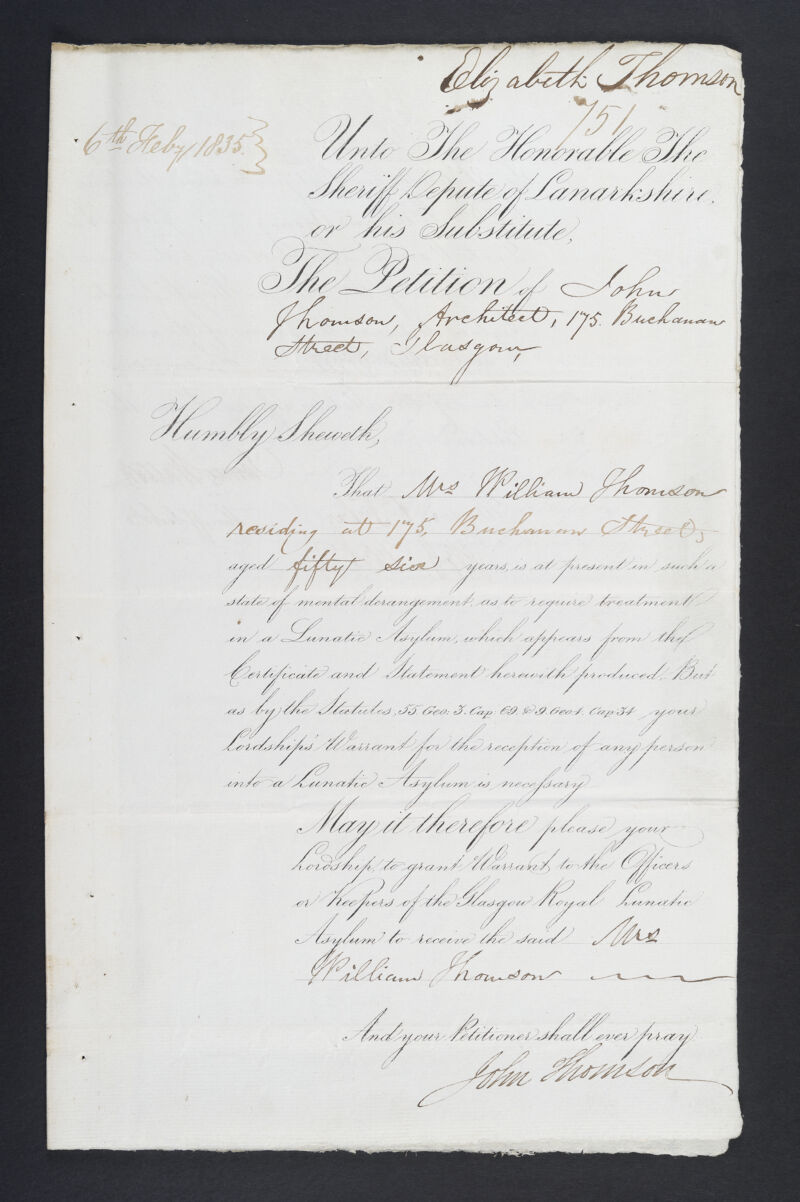 Elizabeth Thomson
751
6th Feby 1835.
Unto The Honorable The
Sheriff Depute of Lanarkshire.
or his Substitute,
The Petition of John
Thomson, Architect, 175. Buchanan
Street, Glasgow,
Humbly Sheweth,
That Mrs William Thomson
residing at 175, Buchanan Street,
aged fifty six years, is at present in such a
state of mental derangement, as to require treatment
in a Lunatic Asylum, which appears from the
Certificate and Statement herewith produced. But
as by the Statutes, 55. Geo. 3. Cap. 69. & 9. Geo. 4. Cap. 34 your
Lordship's Warrant for the reception of any person
into a Lunatic Asylum is necessary
May it therefore please your
Lordship, to grant Warrant, to the Officers
or Keepers of the Glasgow Royal Lunatic
Asylum to receive the said Mrs
William Thomson
And your Petitioner shall ever pray
John Thomson